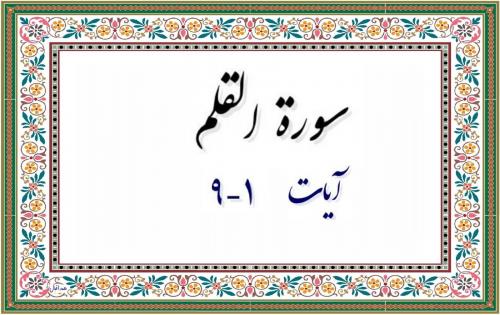 سورة القلم
آیات ۱-۹